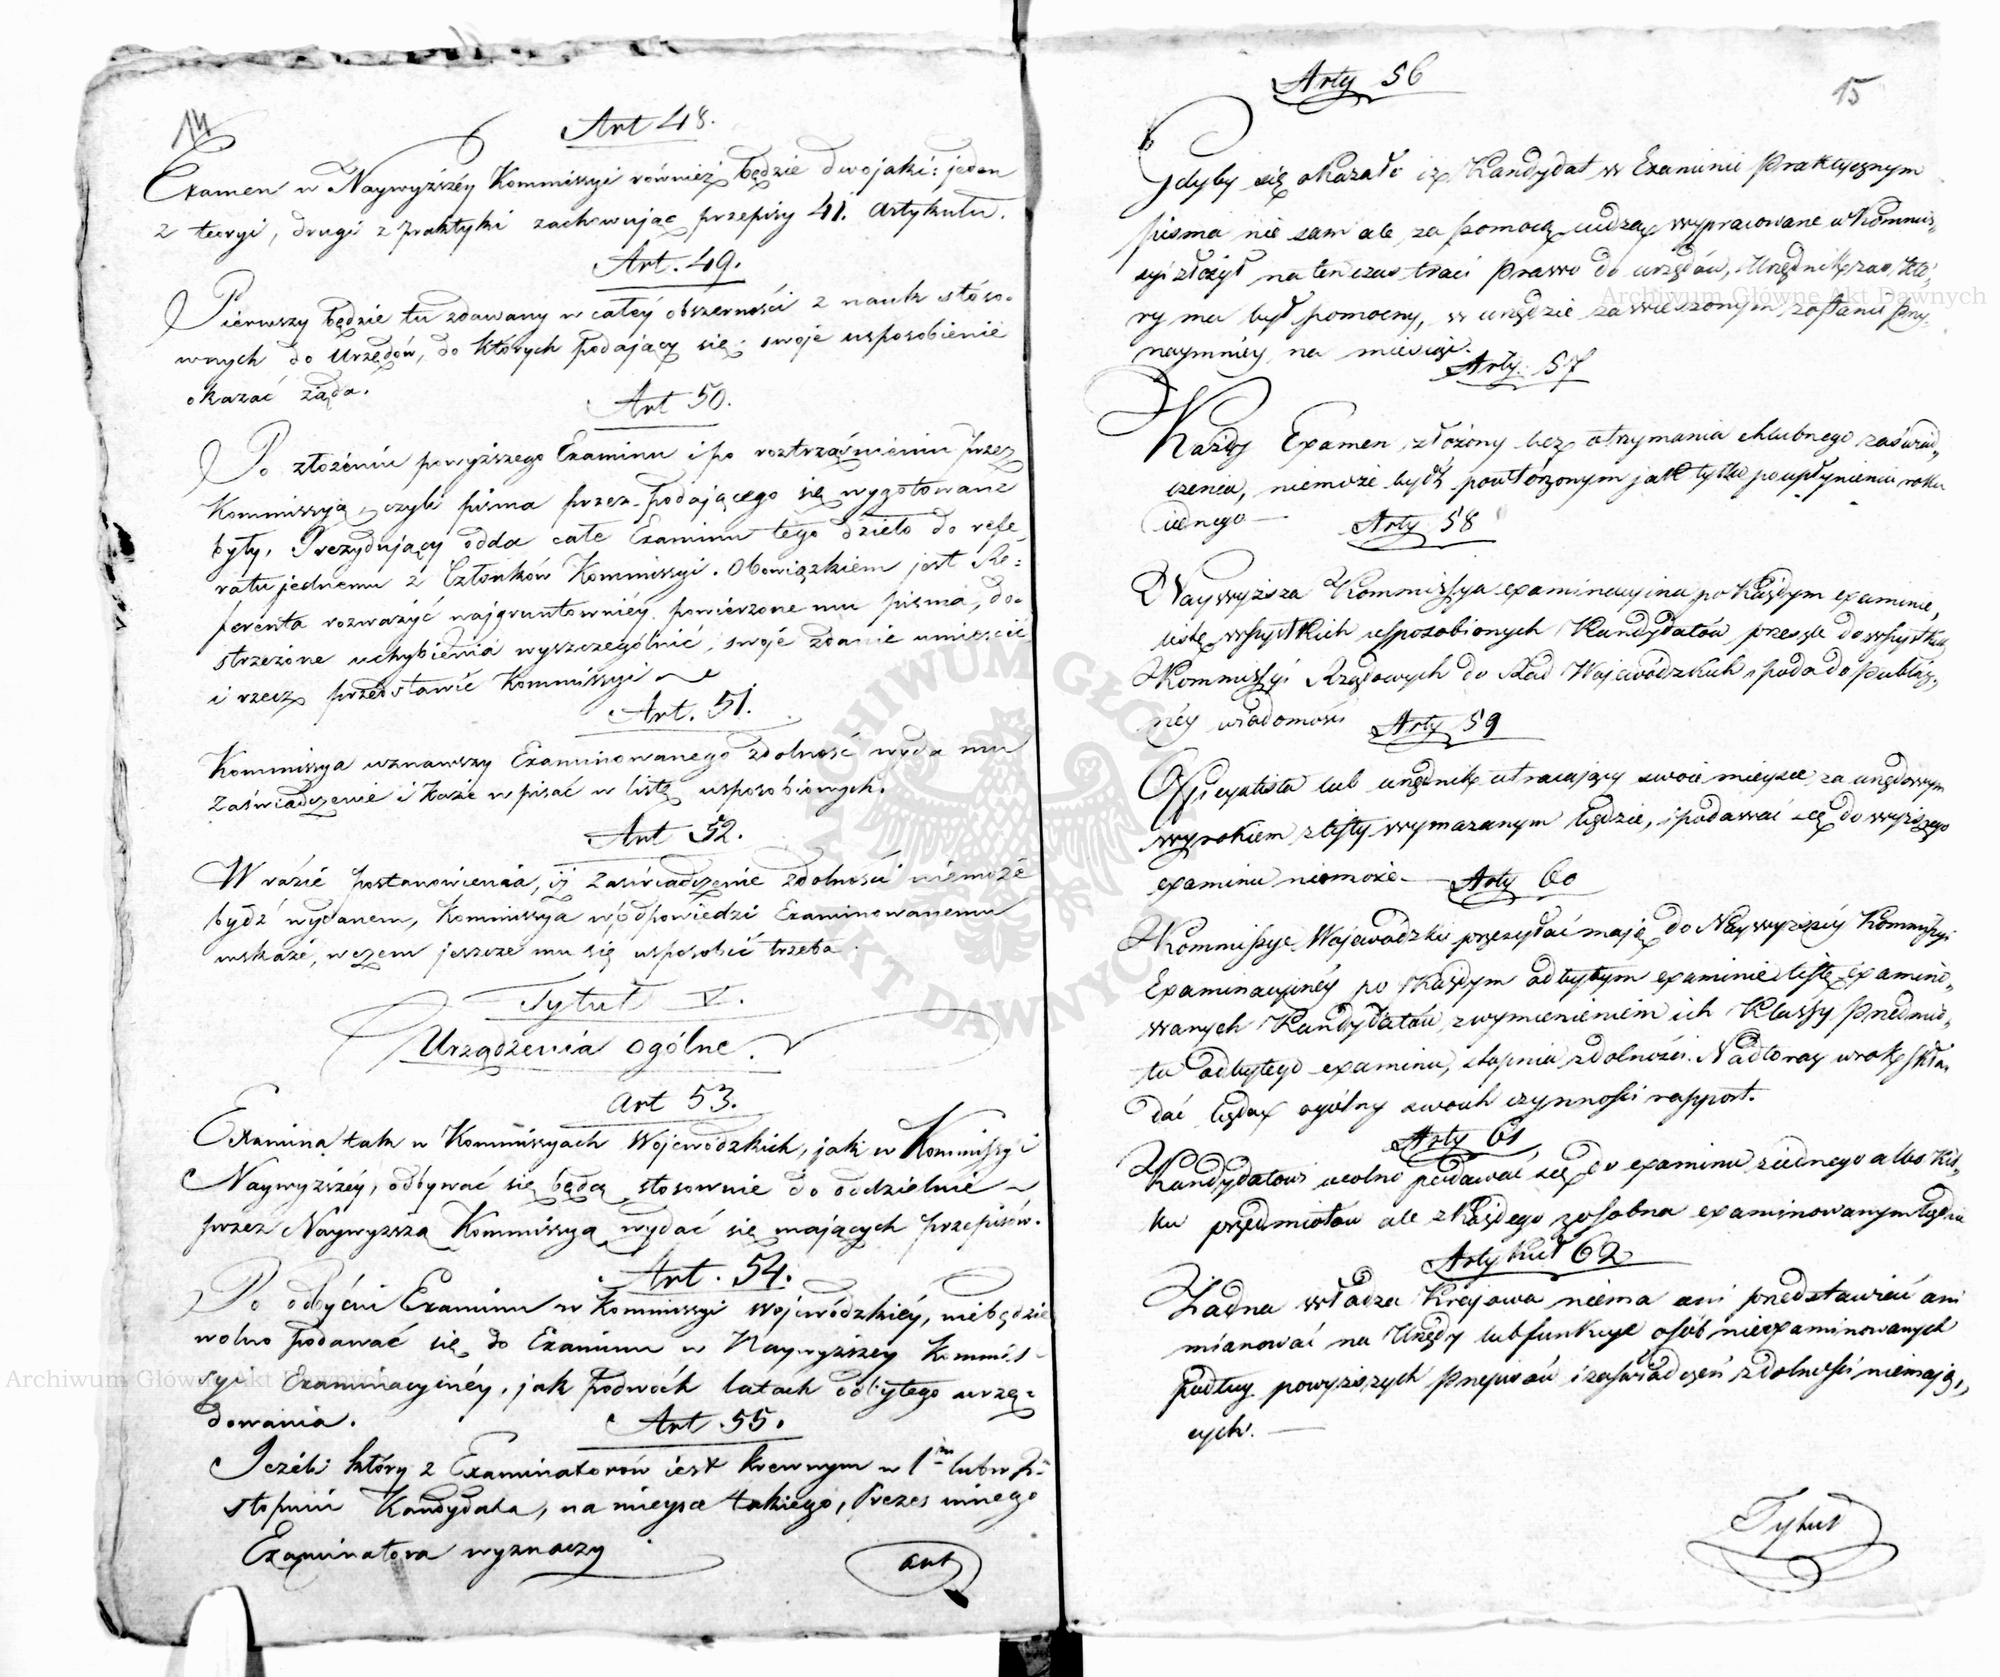 14
Art 48.
Examen w Naywyższéy Kommissyi również będzie dwojaki: jeden
z teoryi, drugi z praktyki zachowując przepisy 41. Artykułu.
Art. 49.
Pierwszy będzie tu zdawany w całéy obszerności z nauk stóso-
wnych do Urzędów, do których podający się swoje usposobienie
okazać żąda.
Art 50.
Po złożéniu powyższego Examinu i po roztrząśnieniu przez
Kommissyą, czyli pisma przez podającego się wygotowane
były, Prezydujący odda całe Examinu tego dzieło do refe
ratu jednemu z Członków Kommissyi. Obowiązkiem jest Re=
ferenta rozważyć najgruntowniéy powierzone mu pisma, do-
strzeżone uchybienia wyszczególnić, swoje zdanie umieścić
i rzecz przedstawić Kommissyi
Art. 51.
Kommissya uznawszy Examinowanego zdolność wyda mu
Zaświadczenie i każe wpisać w listę usposobionych.
Art 52.
W razie postanowienia, iż Zaświadczenie zdolności niemoże
bydź wydanem, Kommissya w odpowiedzi Examinowanemu
wskaże, w czem jeszcze mu się usposobić trzeba.
Tytuł V.
Urządzenia ogólne.
Art 53.
Examina tak w Kommissyach Wojewódzkich, jak w Kommissyi
Naywyższéy, odbywać się będą stosownie do oddzielnie
przez Naywyższą Kommissyą wydać się mających przepisów.
Art. 54.
Po odbyciu Examinu w Kommissyi Wojewódzkiéy, niebędzie
wolno podawać się do Examinu w Naywyższéy Kommis-
syi Examinacyinéy, jak podwóch latach odbytego urzę=
dowania.
Art. 55.
Jeżeli który z Examinatorów jest krewnym w 1m lub w 2m
stopniu Kandydata, na mieysce takiego, Prezes innego
Examinatora wyznaczy
Art
15
Arty 56
Gdyby się okazało iż Kandydat w Examinie praktycznym
pisma nie sam ale za pomocą cudzą wypracowane w Kommis-
syi złożył na ten czas traci prawo do urzędów, Urzędnik zaś, któ-
ry mu był pomocny, w urzędzie zawieszonym zostanie przy
naymniéy na miesiąc.
Arty. 57
Każdy Examen złożony bez otrzymania chlubnego zaświad-
czenia, niemoże bydź powtórzonym jak tylko po upłynieniu roku
iednego
Arty 58
Naywyższa Kommissya examinacyina po każdym examinie,
listę wszystkich usposobionych Kandydatów prześle do wszystkich
Kommissyi Rządowych do Rad Wojewódzkich i poda do publicz-
néy wiadomości
Arty 59
Officyalista lub urzędnik utracający swoie mieysce za urzędowym
wyrokiem z listy wymazanym będzie, i podawać się do wyższego
examinu niemoże.
Arty 60
Kommissye Wojewódzkie przesyłać mają do Naywyższéy Kommissyi
Examinacyinéy po każdym odbytym examinie listę examino-
wanych Kandydatów z wymienieniem ich Klassy przedmio-
tu odbytego examinu, stopnia zdolności. Nadto raz w rok skła-
dać będą ogólny swoich czynności rapport.
Arty 61
Kandydatowi wolno podawać się do examinu z iednego albo kil-
ku przedmiotów ale z każdego zosobna examinowanym będzie
Artykuł 62
Żadna władza Krajowa niema ani przedstawiać ani
mianować na Urzędy lub funkcye osób nieexaminowanych
podług powyższych przepisów i zaświadczeń zdolności niemają-
cych.
Tytuł
Archiwum Główne Akt Dawnych
Archiwum Główne Akt Dawnych
ARCHIWUM GŁÓWNE AKT DAWNYCH